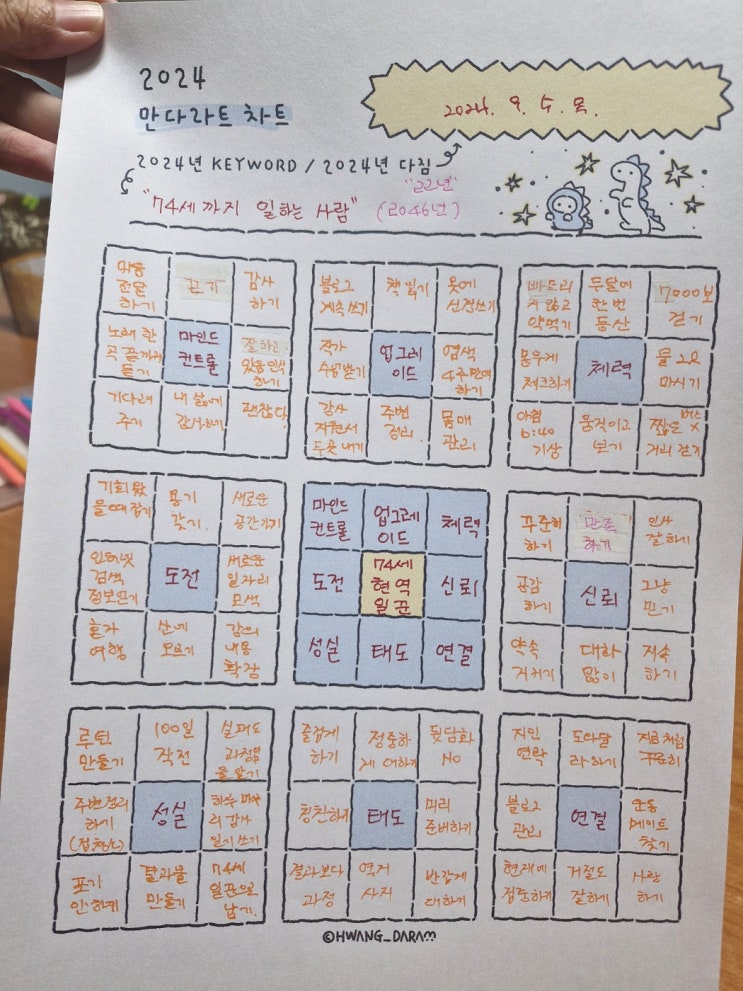 2024
만다라트 차트
2024. 9. 5. 목.
2024년 KEYWORD / 2024년 다짐
"22년"
"74세까지 일하는 사람" (2046년)
마음
전달
하기
끈기
감사
하기
노래 한
곡 끝까지
듣기
마인드
컨트롤
잘하고
있음 인색
하기
기다려
주기
내 삶에
감사하기
괜찮다
블로그
계속 쓰기
책 읽기
옷에
신경쓰기
작가
수업받기
업그레
이드
염색
4주만에
하기
강사
지원서
두곳 내기
주변
정리
몸매
관리
빠트리
지 않고
약먹기
두달에
한 번
등산
7000보
걷기
몸무게
체크하기
체력
물 2L
마시기
아침
6:40
기상
움직이고
보기
짧은 버스 X
거리 걷기
기회 왔
을 때 잡기
용기
갖기
새로운
공간 가기
인터넷
검색
정보얻기
도전
새로운
일자리
모색
혼자
여행
산에
오르기
강의
내용
확장
마인드
컨트롤
업그레
이드
체력
도전
74세
현역
일꾼
신뢰
성실
태도
연결
꾸준히
하기
만족
하기
인사
잘하기
공감
하기
신뢰
그냥
믿기
약속
지키기
대화
많이
지속
하기
루틴
만들기
100일
작전
실패도
과정임
을 알기
주변정리
하기
성실
하루 마무
리 감사
일기 쓰기
포기
안하기
결과물
만들기
74세
일꾼으로
남기
즐겁게
하기
정중하
게 대하기
뒷담화
NO
칭찬하기
태도
미리
준비하기
결과보다
과정
역지
사지
반갑게
대하기
지인
연락
도와달
라하기
지금처럼
꾸준히
블로그
관리
연결
운동
메이트
찾기
현재에
집중하기
거절도
잘하기
사랑
하기
©HWANG_DARAM